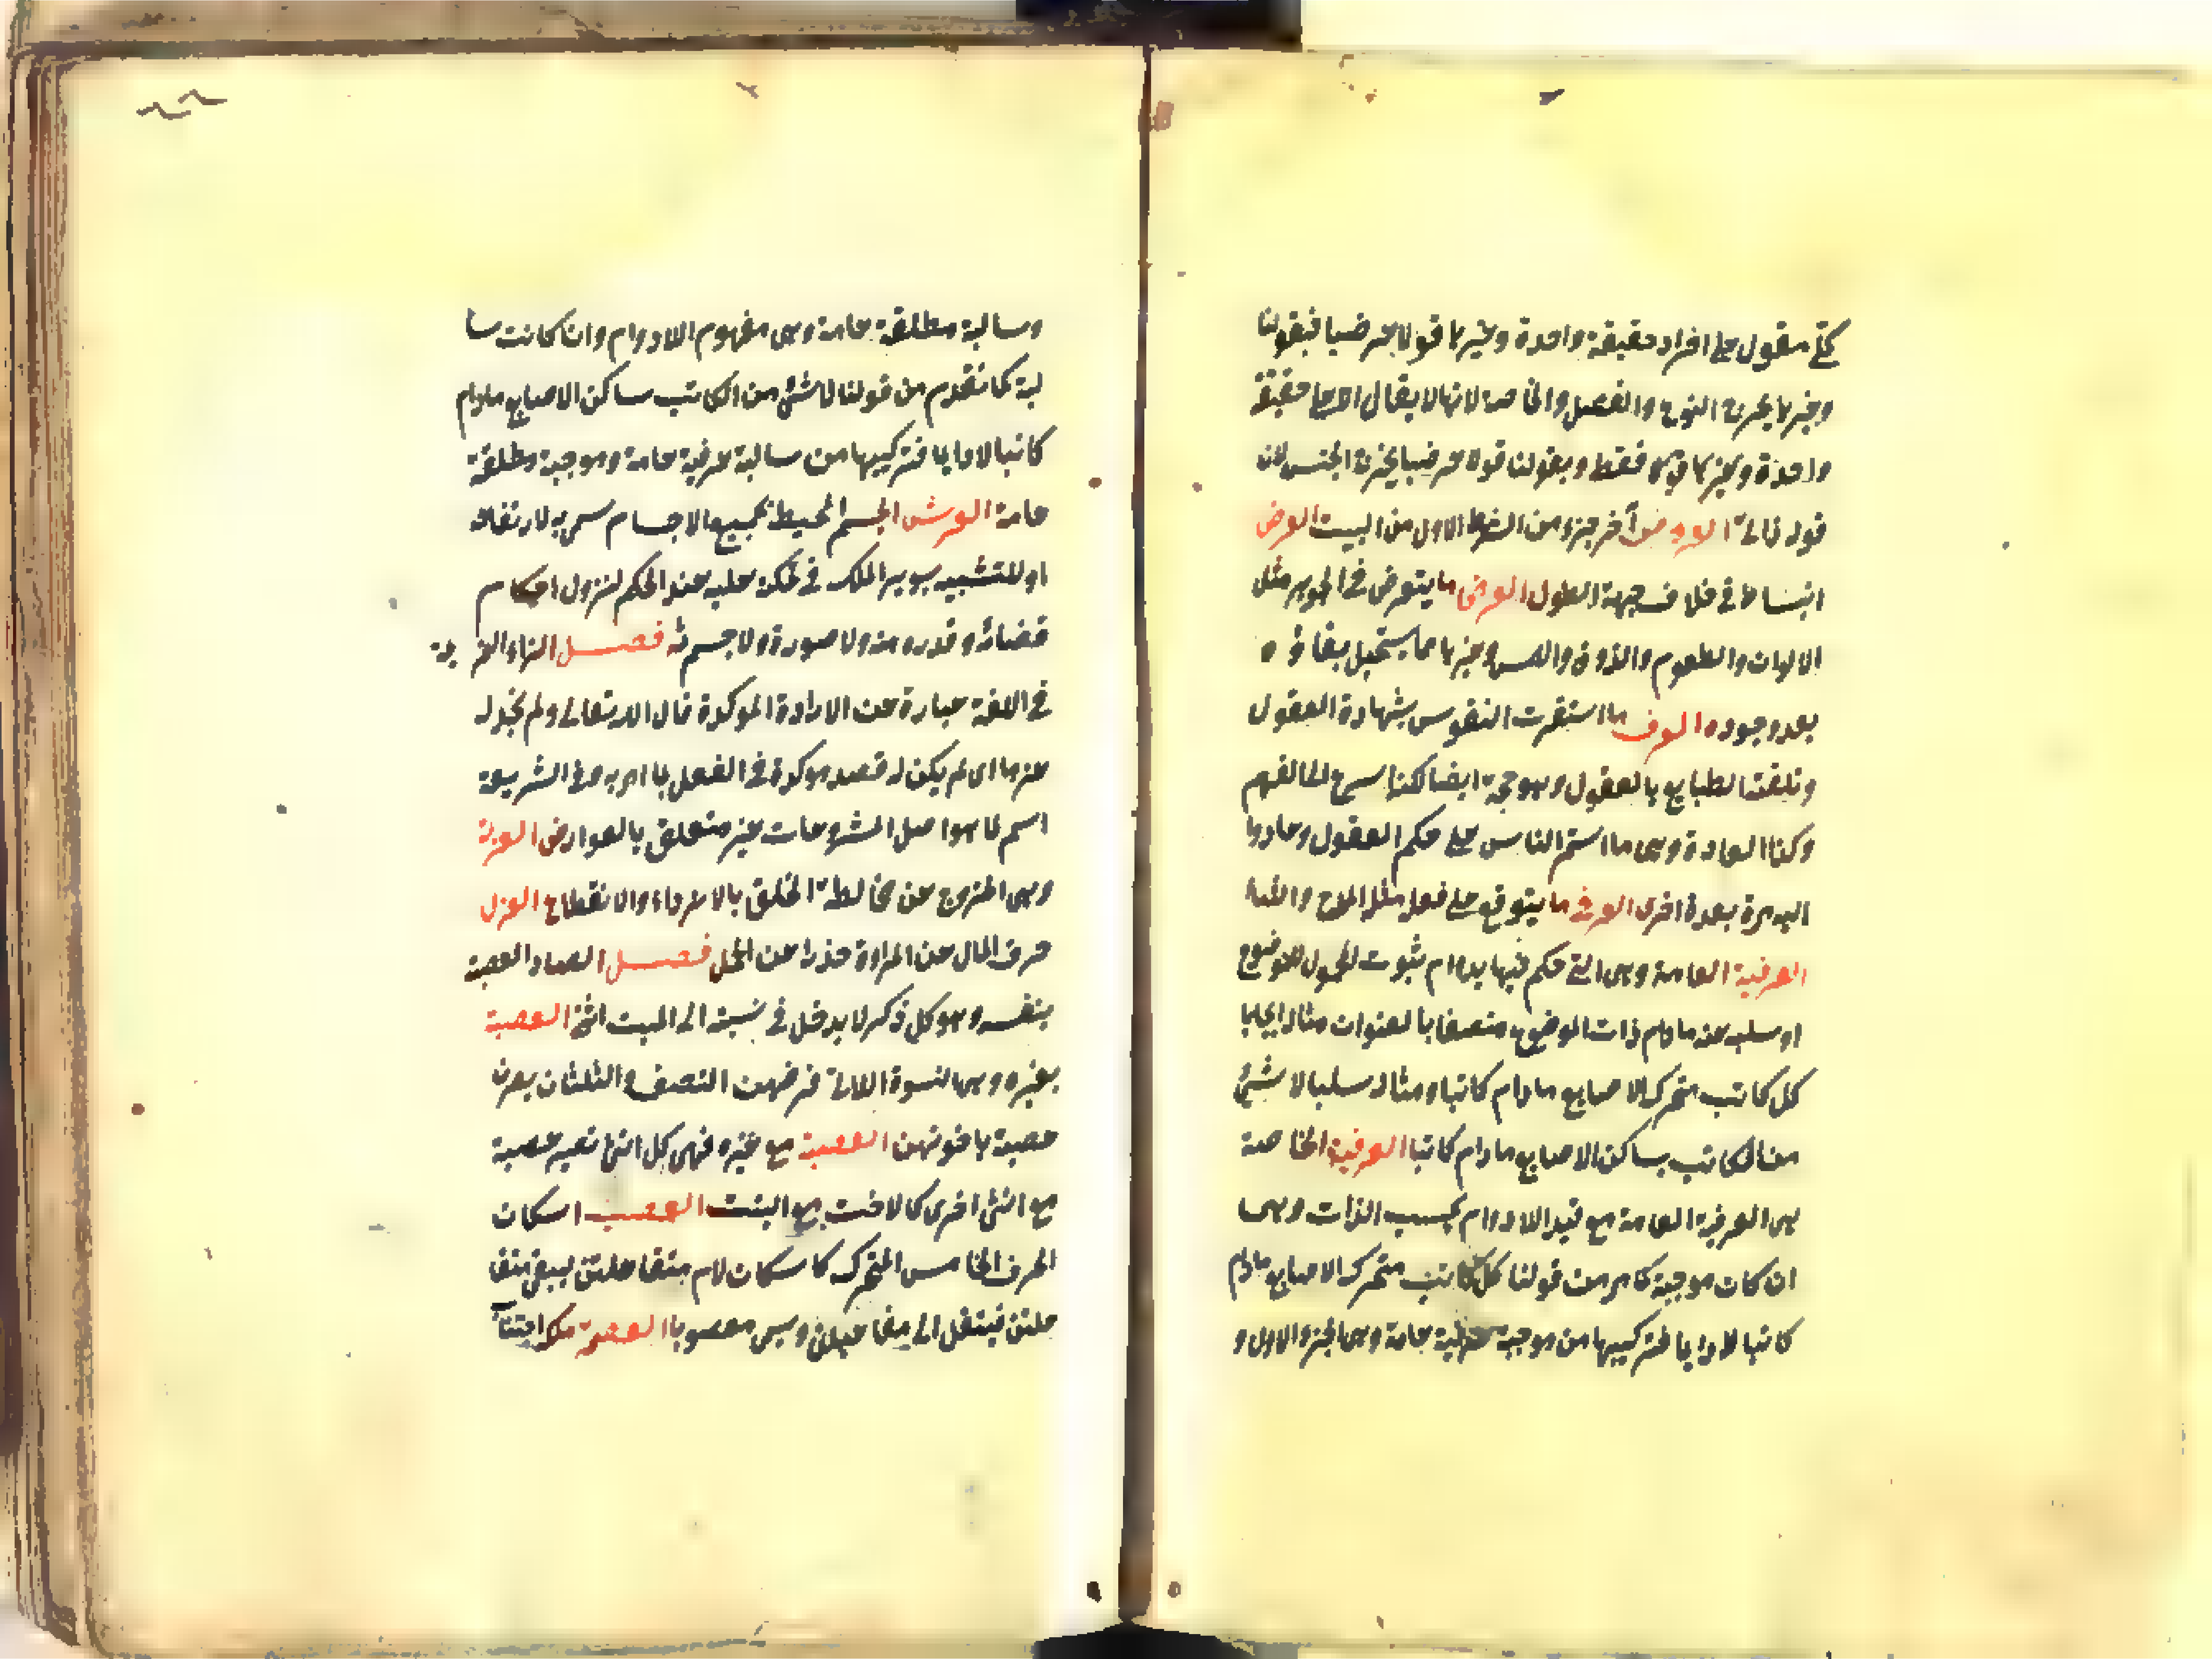 كلي مقول على افراد حقيقة واحدة وغيرها قولا عرضيا فبقولنا
وغيرها يخرج النوع والفصل والخاصة لانها لا يقال الا على حقيقة
واحدة وغيرها فقط وبقولنا قولا عرضيا يخرج الجنس لان
قوله ذاتي العروض آخر جزء من الشطر الاول من البيت العرض
انبساط في خلاف جهة الطول العرض ما يتعرض في الجوهر مثل
الالوان والطعوم والذوق واللمس وغيرها مما يستحيل بقاؤه
بعد وجوده العرف ما استقرت النفوس بشهادة العقول
وتلقته الطبايع بالعقول وهو حجة ايضا لكنه اسرع الى الفهم
وكذا العادة وهي ما استمر الناس على حكم العقول وعادوا
اليه مرة بعد اخرى العرفي ما يتوقع على فعل مثل المدح والثناء
العرفية العامة وهي التي حكم فيها بدوام ثبوت المحمول للموضوع
او سلبه عنه ما دام ذات الموضوع متصفا بالعنوان مثاله ايجابا
كل كاتب متحرك الاصابع ما دام كاتبا ومثاله سلبا لا شئ
من الكاتب بساكن الاصابع ما دام كاتبا العرفية الخاصة
هي العرفية العامة مع قيد اللادوام بحسب الذات وهي
ان كان موجبة كما مر من قولنا كل كاتب متحرك الاصابع ما دام
كاتبا لا دايما فتركيبها من موجبة عرفية عامة وهي الجزء الاول و
وسالبة مطلقة عامة وهي مفهوم اللادوام وان كانت سا
لبة كما تقدم من قولنا لا شئ من الكاتب ساكن الاصابع مادام
كاتبا لا دايما فتركيبها من سالبة عرفية عامة وموجبة مطلقة
عامة العرش الجسم المحيط بجميع الاجسام سمي به لارتفاعه
او للتشبيه بسرير الملك في تمكنه عليه عند الحكم لنزول احكام
قضائه وقدره منه ولا صورة ولا جسم ثمه فصل الزاء العزيمة
في اللغة عبارة عن الارادة الموكدة قال الله تعالى ولم نجد له
عزما اى لم يكن له قصد موكدة في الفعل بما امر به وفي الشريعة
اسم لما هو اصل المشروعات غير متعلق بالعوارض العزلة
وهي الخروج عن مخالطة الخلق بالانزواء والانقطاع العزل
صرف المال عن المراءة حذرا عن الحمل فصل الصاد العصبة
بنفسه وهو كل ذكر لا يدخل في نسبته الى الميت انثى العصبة
بغيره وهي النسوة اللاتي فرضهن النصف والثلثان يصرن
عصبة باخوتهن العصبة مع غيره فهى كل انثى تصير عصبة
مع انثى اخرى كالاخت مع البنت العصب اسكان
الحرف الخامس المتحرك كاسكان لام متفاعلتن ليبقى متفا
علتن فينتقل الى مفاعيلن ويسمى معصوبا العصمة ملكة اجتناب